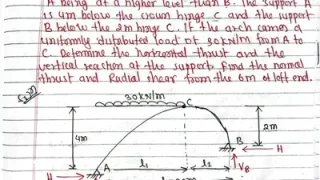 A being at a higher level than B. The support A
is 4m below the crown hinge C and the support
B below the 2m hinge C. If the arch carries a
uniformly distributed load of 30 kN/m from A to
C. Determine the horizontal thrust and the
vertical reaction at the support. Find the normal
thrust and Radial shear from the 6m of left end.
Sol^n
30kN/m
C
4m
2m
A
l₁
l₂
B
H
H
V_B